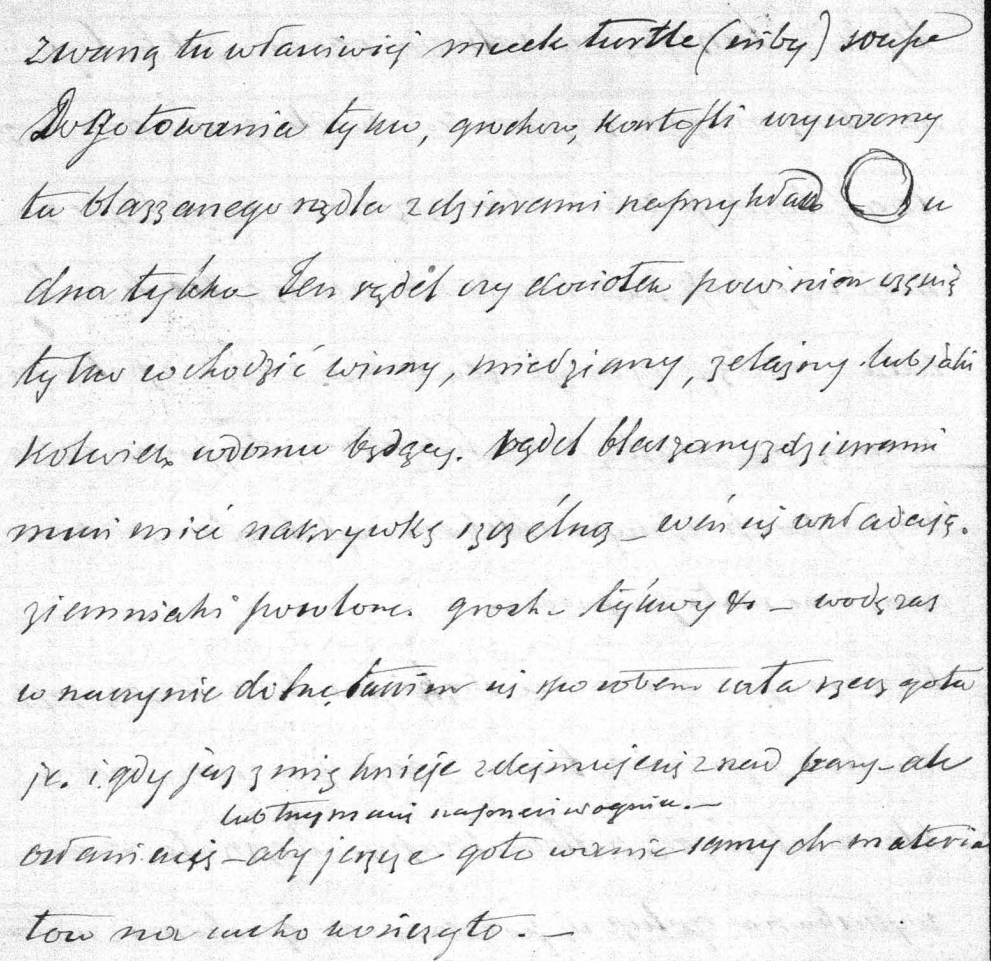 zwaną tu właściwiej mock turtle (niby) soupe
Do Gotowania tykw, grochow, kartofli używamy
tu blaszanego rądla z dziurami naprzykład u
dna tylko Ten rądel czy kociołek powinien częścią
tylko wchodzić w inny, miedziany, żelazny lub jaki
kolwiek w domu będący. Rądel blaszany z dziurami
musi mieć nakrywkę szczélną _ weń się wkładają.
ziemniaki fasola groch _ tykwy & _ wodę zaś
w naczynie dolne, takim się sposobem cała rzecz gotu
je. i gdy już zmięknieje zdejmuje się z nad pary _ ale
lub trzyma się naprzeciw ognia. _
osłania się _ aby jeszcze gotowanie samych materia
łow na sucho kończyło. _